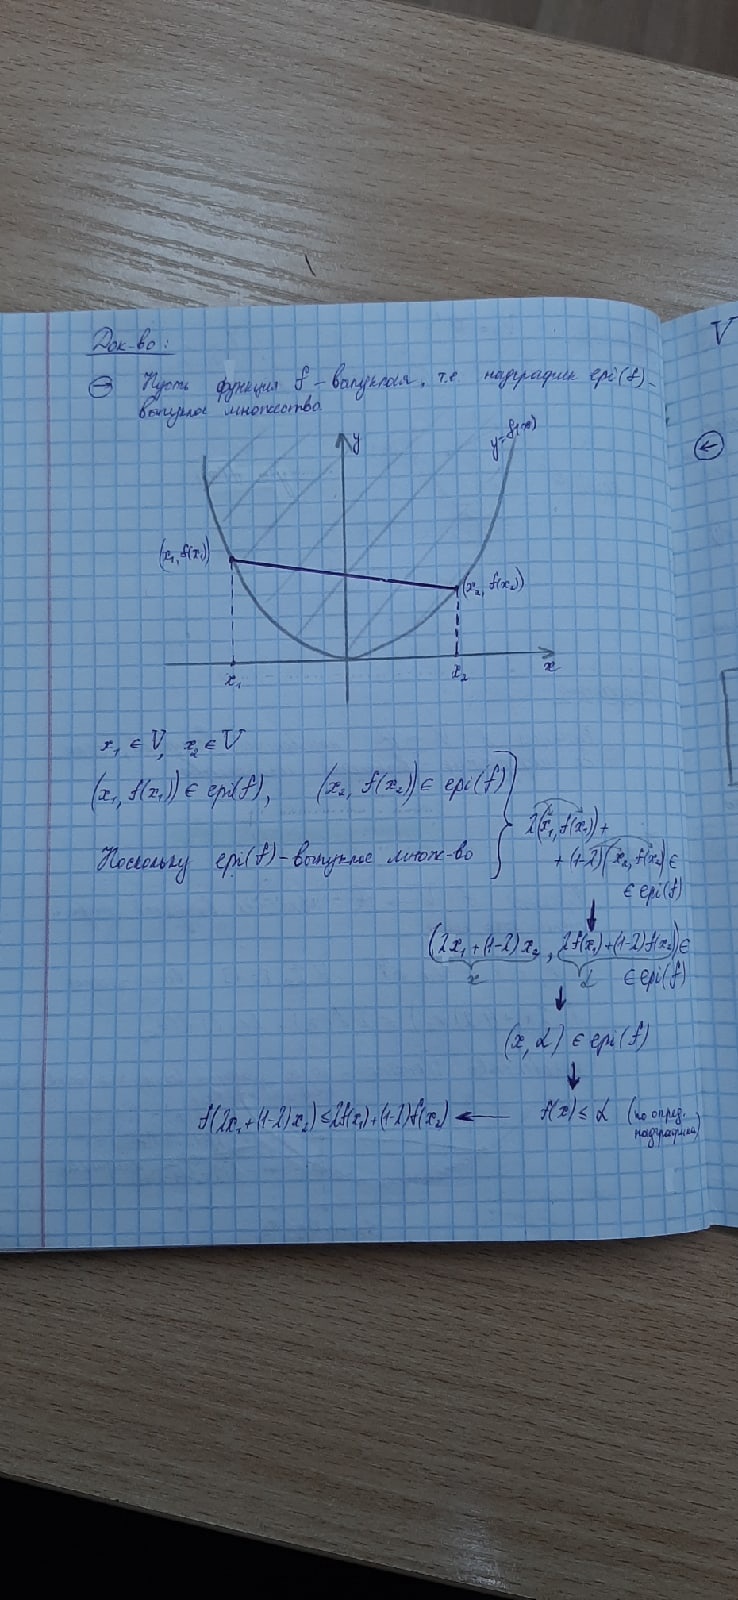 Док-во:
→ Пусть функция f - выпуклая, т.е. надграфик epi(f) -
выпуклое множество
y
y=f(x)
(x₁, f(x₁))
(x₂, f(x₂))
x₁
x₂
x
x₁ ∈ V, x₂ ∈ V
(x₁, f(x₁)) ∈ epi(f), (x₂, f(x₂)) ∈ epi(f)
Поскольку epi(f) - выпуклое множ-во
λ(x₁, f(x₁)) +
+ (1-λ)(x₂, f(x₂)) ∈
∈ epi(f)
(λx₁ + (1-λ)x₂, λf(x₁) + (1-λ)f(x₂)) ∈
x α ∈ epi(f)
(x, α) ∈ epi(f)
f(λx₁ + (1-λ)x₂) ≤ λf(x₁) + (1-λ)f(x₂) ← f(x) ≤ α (по опред.
надграфика)
V
←